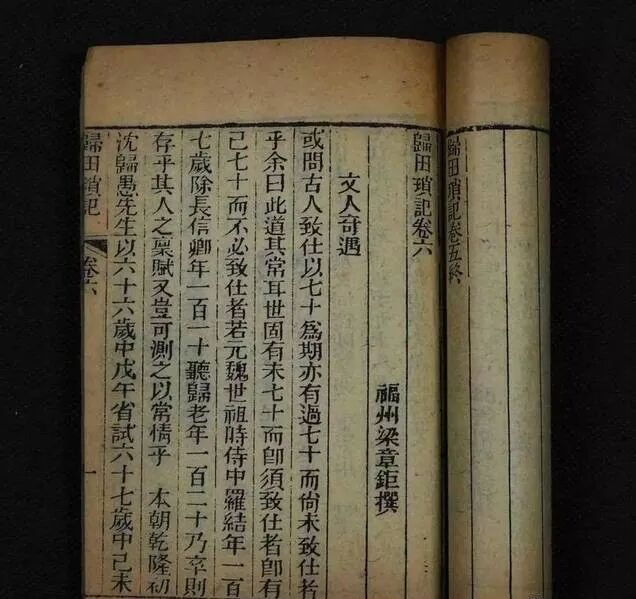 歸田瑣記卷五終
歸田瑣記卷六
福州梁章鉅撰
文人奇遇
或問古人致仕以七十為期亦有過七十而尙未致仕者
乎余曰此道其常耳世固有未七十而卽須致仕者卽有
已七十而不必致仕者若元魏世祖時侍中羅結年一百
七歲除長信卿年一百一十聽歸老年一百二十乃卒則
存乎其人之稟賦又豈可測之以常情乎 本朝乾隆初
沈歸愚先生以六十六歲中戊午省試六十七歲中己未
歸田瑣記 卷六 一